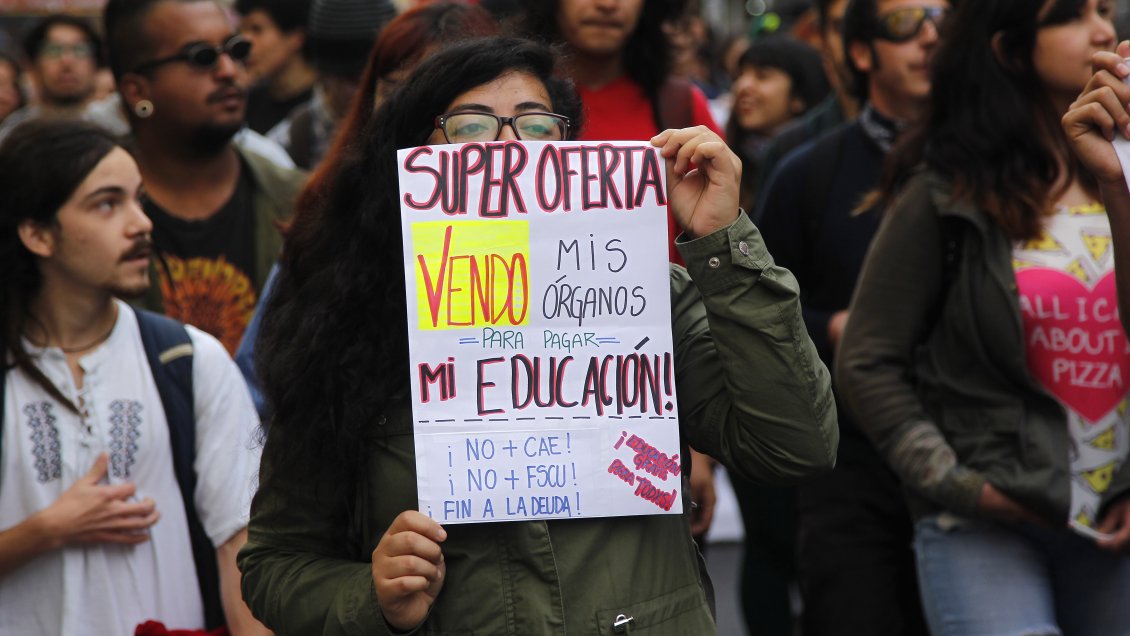 SUPER OFERTA
VENDO
MIS
ÓRGANOS
=PARA PAGAR=
MI EDUCACIÓN!
¡NO + CAE!
¡NO + FSCU!
¡FIN A LA DEUDA!
¡EDUCACIÓN
GRATIS
PARA TODXS!
ALL I C
ABOUT
PIZZA